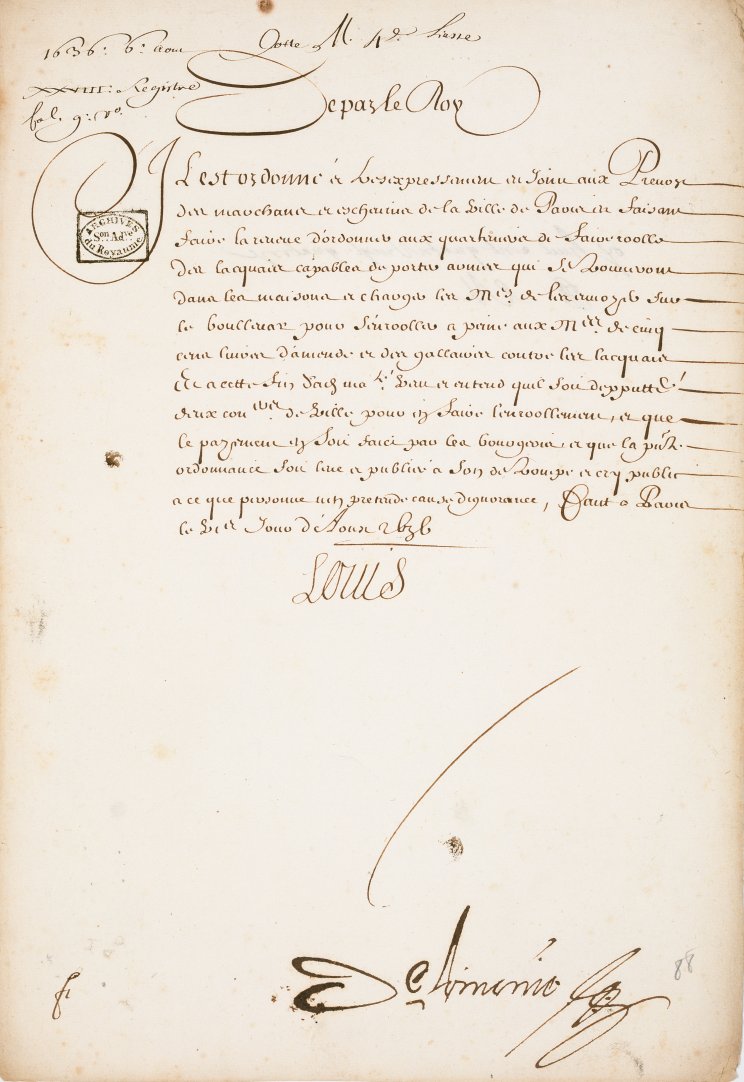 1636. 6. aout Cotte M. 4e. Liasse
XXVIII: Registre
fol. 9. vo.
De par le Roy
Il est ordonné et tresexpressement enjoinct aux Prevost
des marchans et eschevins de la Ville de Paris en faisant
faire la reveue d'ordonner aux quarteniers de faire roolle
des lacquais capables de porter armes qui se trouveront
dans les maisons et charger les Mes de les envoyer sur
le boullevar pour s'enrooller a peine aux Mes de cinq
cens livres d'amende et des gallaires contre les lacquais
Et a cette fin Sad. ma.té veut et entend quil soit deppute
deux con.ers de Ville pour en faire l'enroollement, et que
le payement en soit faict par les bourgeois et que la pñte
ordonnance soit leue et publiée a son de trompe et cry public
a ce que personne n'en pretende cause dignorance, Faict a Paris
le VIe Jour d'Aoust 1636
Louis
De Lomenie
ARCHIVES
Son Ad.ve
du Royaume
88